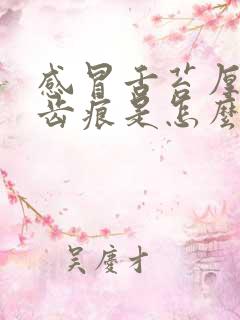 感冒舌苔厚
齿痕是怎麼
吴慶才